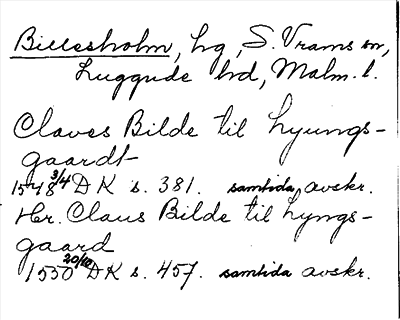 Billesholm, hg, S. Vrams sn,
Luggude hd, Malm. l.
Claves Bilde til Lyungs-
gaardt
1548 3/4 DK s. 381. samtida avskr.
Hr. Claus Bilde til Lyngs-
gaard
1550 20/10 DK s. 457. samtida avskr.